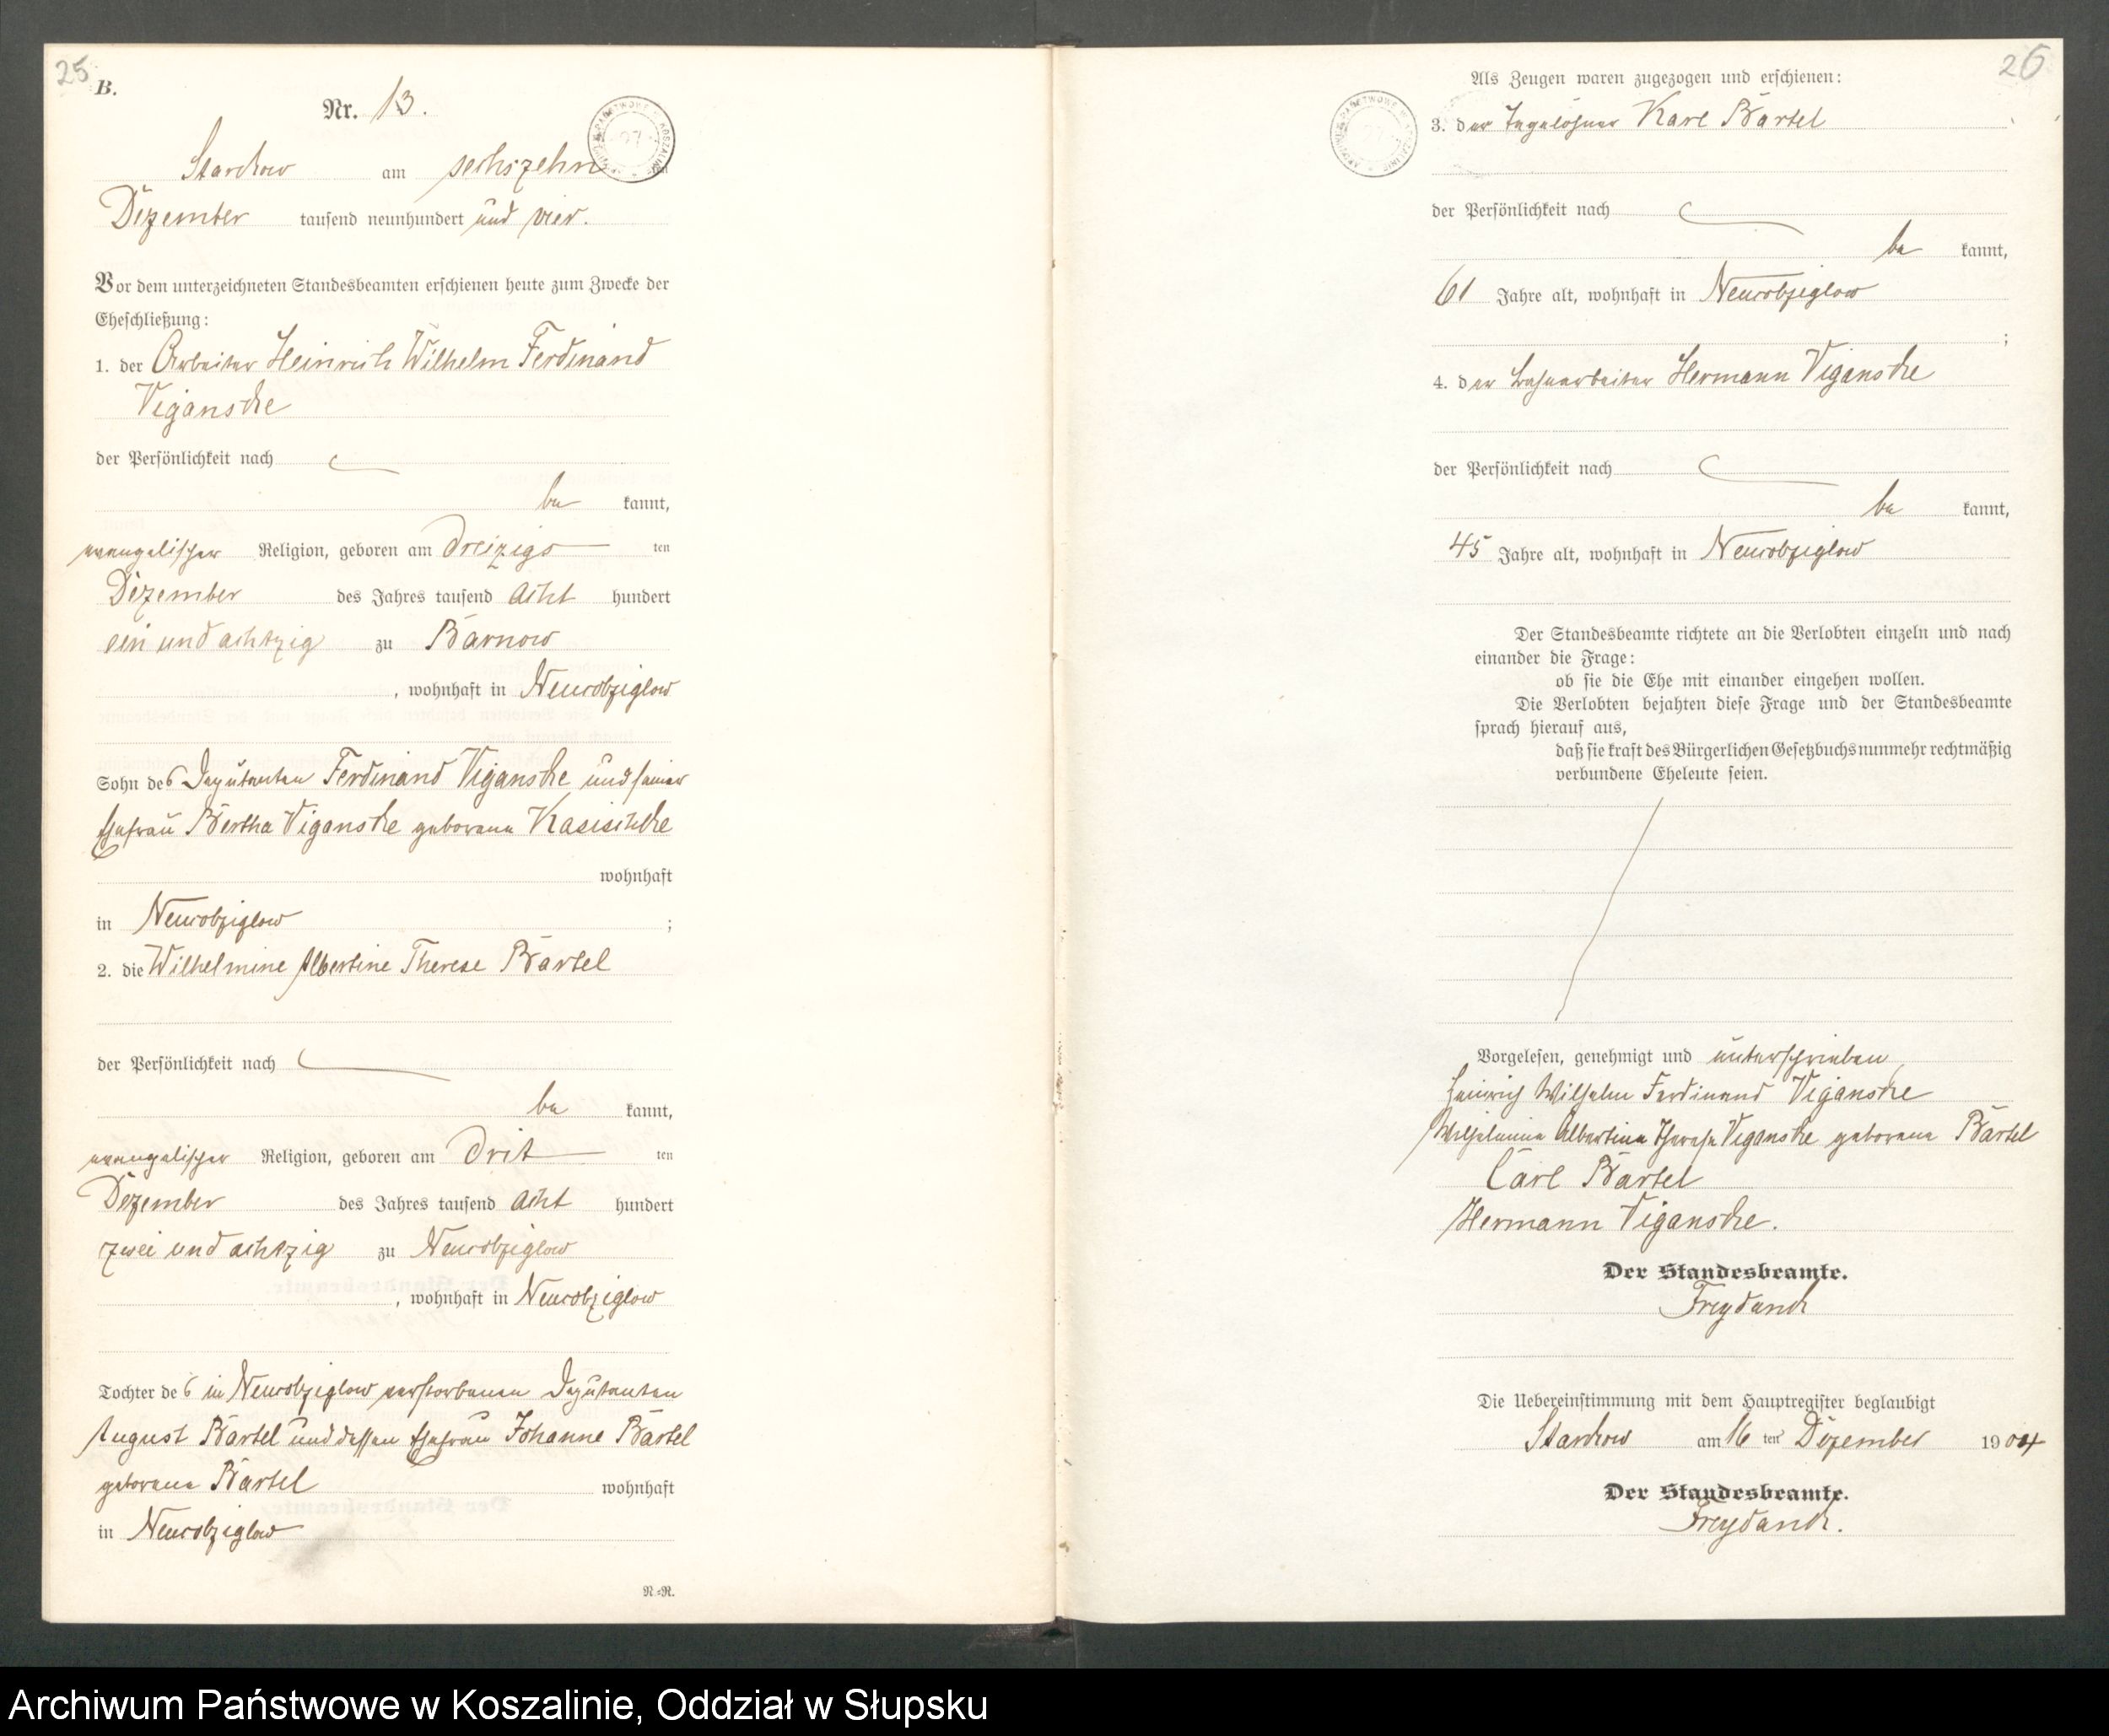 25
B.
Nr. 13.
Starckow am sechszehn ten
Dezember tausend neunhundert und vier.
Vor dem unterzeichneten Standesbeamten erschienen heute zum Zwecke der
Eheschließung:
1. der Arbeiter Heinrich Wilhelm Ferdinand
Viganske
der Persönlichkeit nach
be kannt,
evangelischer Religion, geboren am dreizigs ten
Dezember des Jahres tausend acht hundert
ein und achtzig zu Barnow
, wohnhaft in Neucobziglow
Sohn des Deputanten Ferdinand Viganske und seiner
Ehefrau Bertha Viganske geborene Kasischke
wohnhaft
in Neucobziglow ;
2. die Wilhelmine Albertine Therese Bartel
der Persönlichkeit nach
be kannt,
evangelischer Religion, geboren am drit ten
Dezember des Jahres tausend acht hundert
zwei und achtzig zu Neucobziglow
, wohnhaft in Neucobziglow
Tochter des in Neucobziglow verstorbenen Deputanten
August Bartel und dessen Ehefrau Johanne Bartel
geborene Bartel wohnhaft
in Neucobziglow
N.=N.
26
Als Zeugen waren zugezogen und erschienen:
3. der Tagelöhner Karl Bartel
der Persönlichkeit nach
be kannt,
61 Jahre alt, wohnhaft in Neucobziglow
;
4. der Bahnarbeiter Hermann Viganske
der Persönlichkeit nach
be kannt,
45 Jahre alt, wohnhaft in Neucobziglow
Der Standesbeamte richtete an die Verlobten einzeln und nach
einander die Frage:
ob sie die Ehe mit einander eingehen wollen.
Die Verlobten bejahten diese Frage und der Standesbeamte
sprach hierauf aus,
daß sie kraft des Bürgerlichen Gesetzbuchs nunmehr rechtmäßig
verbundene Eheleute seien.
Vorgelesen, genehmigt und unterschrieben
Heinrich Wilhelm Ferdinand Viganske
Wilhelmine Albertine Therese Viganske geborene Bartel
Carl Bartel
Hermann Viganske.
Der Standesbeamte.
Freydanck
Die Uebereinstimmung mit dem Hauptregister beglaubigt
Starckow am 16 ten Dezember 1904
Der Standesbeamte.
Freydanck.
Archiwum Państwowe w Koszalinie, Oddział w Słupsku